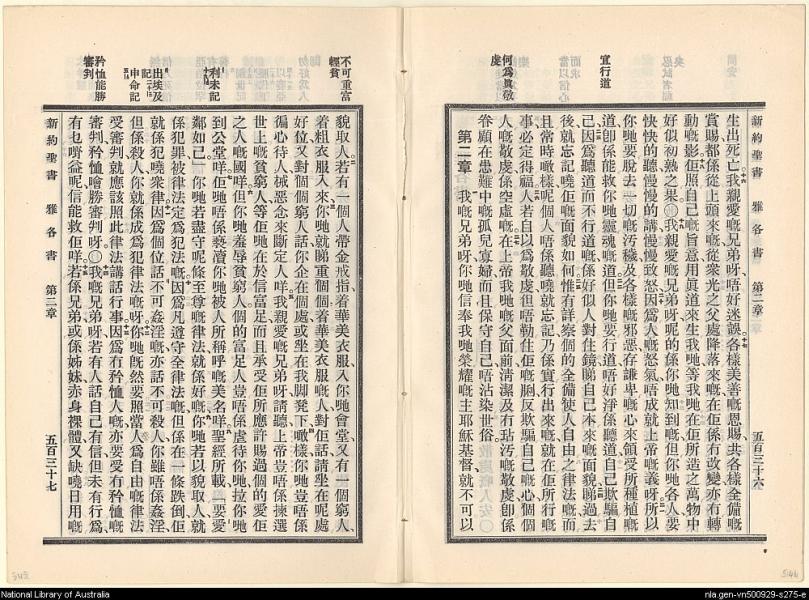 宜行道
何爲眞敬虔
新約聖書 雅各書 第二章 五百三十六
生出死亡我親愛嘅兄弟呀唔好迷誤各樣美善嘅恩賜共各樣全備嘅
賞賜都係從上頭來嘅從衆光之父處降落來嘅在佢係冇改變亦冇轉
動嘅影佢照自己嘅旨意用眞道來生我哋等我哋在佢所造之萬物中
好似初熟之果○我親愛嘅兄弟呀呢的係你哋知到嘅但你哋各人要
快快的聽慢慢的講慢慢致怒因爲人嘅怒氣唔成就上帝嘅義呀所以
你哋要脫去一切嘅汚穢及各樣嘅邪惡存謙卑嘅心來領受所種植嘅
道卽係能救你哋靈魂嘅道但你哋要行道唔好淨係聽道自己欺騙自
己因爲聽道而不行道嘅係好似人對住鏡睇自己本來嘅面貌睇過去
後就忘記曉佢嘅面貌如何惟有詳察個的全備使人自由之律法嘅而
且常時噉樣呢個人唔係聽曉就忘記乃係實行出來嘅就在佢所行嘅
事必定得福人若自以爲敬虔但唔勒住佢嘅脷反欺騙自己嘅心個個
人嘅敬虔係空虛嘅在上帝我哋嘅父面前淸潔及冇玷汚嘅敬虔卽係
眷顧在患難中嘅孤兒寡婦而且保守自己唔沾染世俗
第二章 我嘅兄弟呀你哋信奉我哋榮耀嘅主耶穌基督就不可以
不可重富輕貧
利未記
出埃及記
申命記
矜恤能勝審判
貌取人若有一個人帶金戒指着華美衣服入你哋會堂又有一個貧窮人
着粗衣服入來你哋就睇重個個着華美衣服嘅人對佢話請坐在呢處
好位又對個個貧窮人話你企在個處或坐在我脚凳下噉樣你哋豈唔係
偏心待人械惡念來斷定人咩我親愛嘅兄弟呀請聽上帝豈唔係揀選
世上嘅貧窮人等佢哋在於信富足而且承受佢所應許賜過個的愛佢
之人嘅國咩但你哋羞辱貧窮人個的富足人豈唔係虐待你哋拉你哋
到公堂咩佢哋唔係褻瀆你哋被人所稱呼嘅美名咩聖經所載要愛
鄰如己你哋若盡守呢條至尊嘅律法就係好嘅你哋若以貌取人就
係犯罪被律法定爲犯法嘅因爲凡遵守全律法嘅但係在一條跌倒佢
就係犯曉衆律因爲個位話不可姦淫嘅亦話不可殺人你雖唔係姦淫
但係殺人你就係成爲犯律法嘅呀你哋旣然要照當人爲自由嘅律法
受審判就應該照此律法講話行事因爲冇矜恤人嘅亦要受冇矜恤嘅
審判矜恤噲勝審判呀○我嘅兄弟呀若有人話自己有信但未有行爲
有乜嘢益呢信能救佢咩若係兄弟或係姊妹赤身裸體又缺曉日用嘅
新約聖書 雅各書 第二章 五百三十七
National Library of Australia
nla.gen-vn500929-s275-e